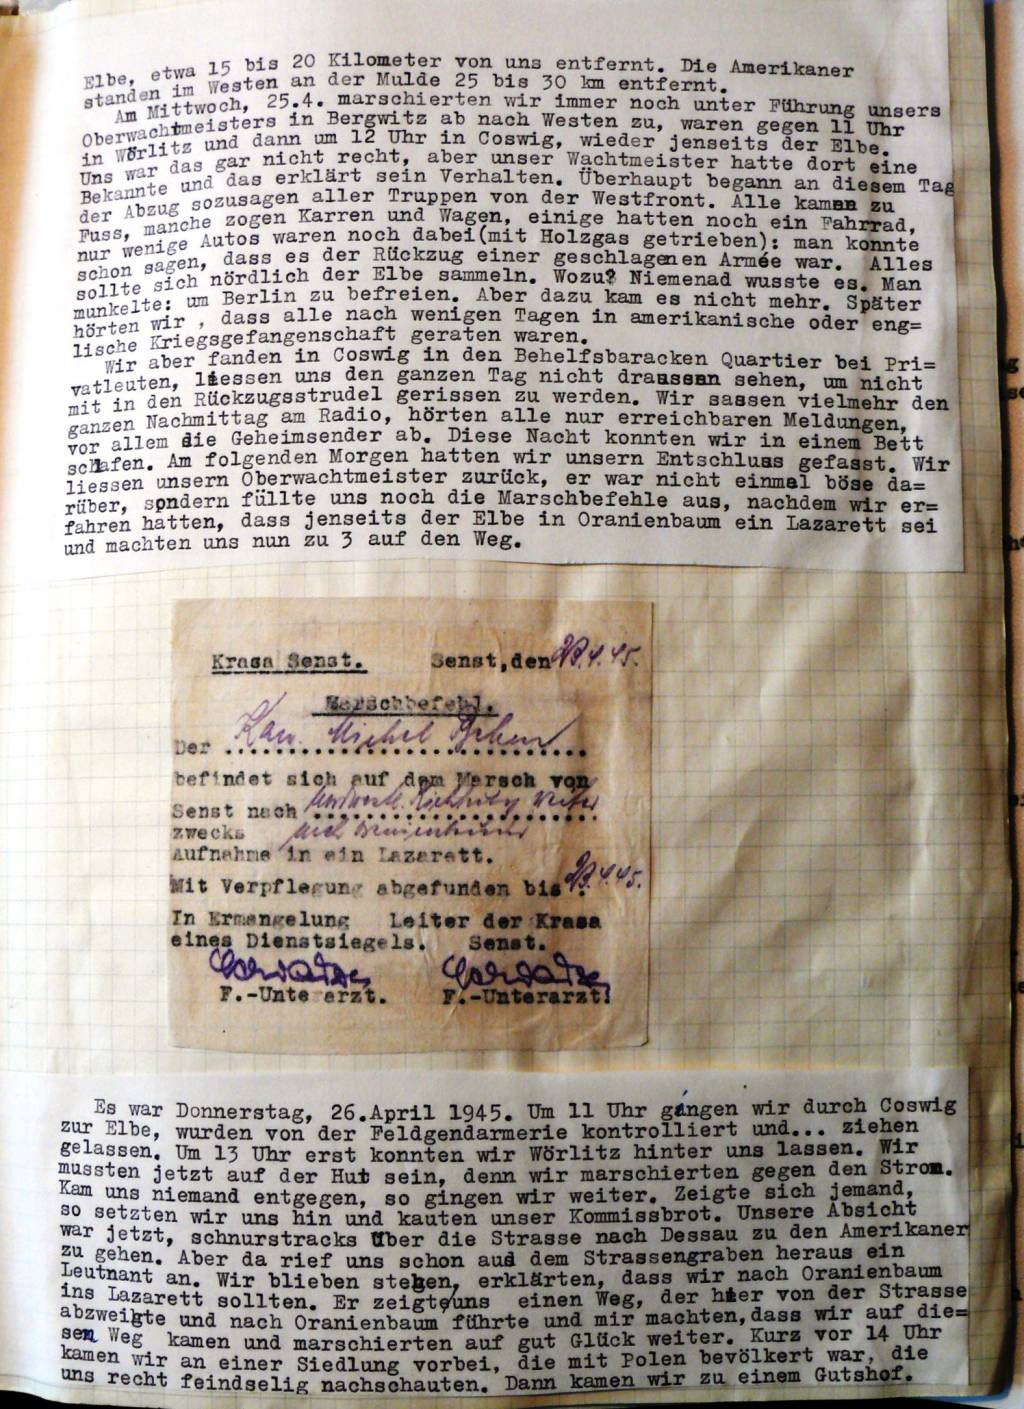 Elbe, etwa 15 bis 20 Kilometer von uns entfernt. Die Amerikaner
standen im Westen an der Mulde 25 bis 30 km entfernt.
Am Mittwoch, 25.4. marschierten wir immer noch unter Führung unsers
Oberwachtmeisters in Bergwitz ab nach Westen zu, waren gegen 11 Uhr
in Wörlitz und dann um 12 Uhr in Coswig, wieder jenseits der Elbe.
Uns war das gar nicht recht, aber unser Wachtmeister hatte dort eine
Bekannte und das erklärt sein Verhalten. Überhaupt begann an diesem Tag
der Abzug sozusagen aller Truppen von der Westfront. Alle kamen zu
Fuss, manche zogen Karren und Wagen, einige hatten noch ein Fahrrad,
nur wenige Autos waren noch dabei(mit Holzgas getrieben): man konnte
schon sagen, dass es der Rückzug einer geschlagenen Armée war. Alles
sollte sich nördlich der Elbe sammeln. Wozu? Niemenad wusste es. Man
munkelte: um Berlin zu befreien. Aber dazu kam es nicht mehr. Später
hörten wir , dass alle nach wenigen Tagen in amerikanische oder eng=
lische Kriegsgefangenschaft geraten waren.
Wir aber fanden in Coswig in den Behelfsbaracken Quartier bei Pri=
vatleuten, liessen uns den ganzen Tag nicht draussen sehen, um nicht
mit in den Rückzugsstrudel gerissen zu werden. Wir sassen vielmehr den
ganzen Nachmittag am Radio, hörten alle nur erreichbaren Meldungen,
vor allem die Geheimsender ab. Diese Nacht konnten wir in einem Bett
schlafen. Am folgenden Morgen hatten wir unsern Entschluss gefasst. Wir
liessen unsern Oberwachtmeister zurück, er war nicht einmal böse da=
rüber, sondern füllte uns noch die Marschbefehle aus, nachdem wir er=
fahren hatten, dass jenseits der Elbe in Oranienbaum ein Lazarett sei
und machten uns nun zu 3 auf den Weg.
Krasa Senst. Senst,den 23.4.45.
Marschbefehl.
Der Kan. Michel
befindet sich auf dem Marsch von
Senst nach
zwecks
Aufnahme in ein Lazarett.
Mit Verpflegung abgefunden bis 23.4.45.
In Ermangelung Leiter der Krasa
eines Dienstsiegels. Senst.
F.-Unterarzt. F.-Unterarzt.
Es war Donnerstag, 26.April 1945. Um 11 Uhr gingen wir durch Coswig
zur Elbe, wurden von der Feldgendarmerie kontrolliert und... ziehen
gelassen. Um 13 Uhr erst konnten wir Wörlitz hinter uns lassen. Wir
mussten jetzt auf der Hut sein, denn wir marschierten gegen den Strom.
Kam uns niemand entgegen, so gingen wir weiter. Zeigte sich jemand,
so setzten wir uns hin und kauten unser Kommissbrot. Unsere Absicht
war jetzt, schnurstracks über die Strasse nach Dessau zu den Amerikaner
zu gehen. Aber da rief uns schon aus dem Strassengraben heraus ein
Leutnant an. Wir blieben stehen, erklärten, dass wir nach Oranienbaum
ins Lazarett sollten. Er zeigte/uns einen Weg, der hier von der Strasse
abzweigte und nach Oranienbaum führte und mir machten,dass wir auf die=
sen Weg kamen und marschierten auf gut Glück weiter. Kurz vor 14 Uhr
kamen wir an einer Siedlung vorbei, die mit Polen bevölkert war, die
uns recht feindselig nachschauten. Dann kamen wir zu einem Gutshof.